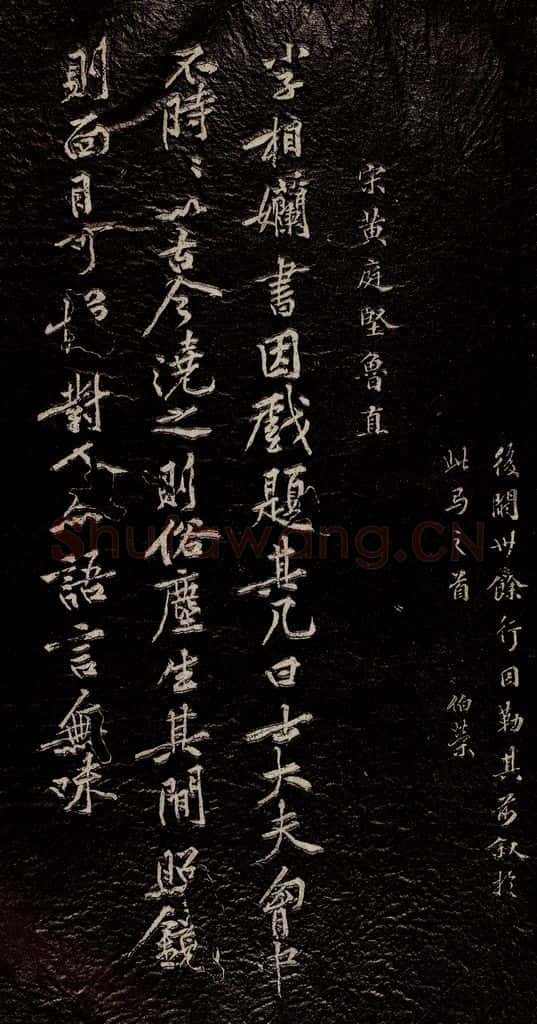 後闕廿餘行因勒其前叙於
此马之首 伯榮
宋黄庭堅魯直
字相孏書因戲題其几曰士大夫胷中
不時〻以古今澆之則俗塵生其閒照鏡
則面目可憎對人亦語言無味
Shufawang.CN